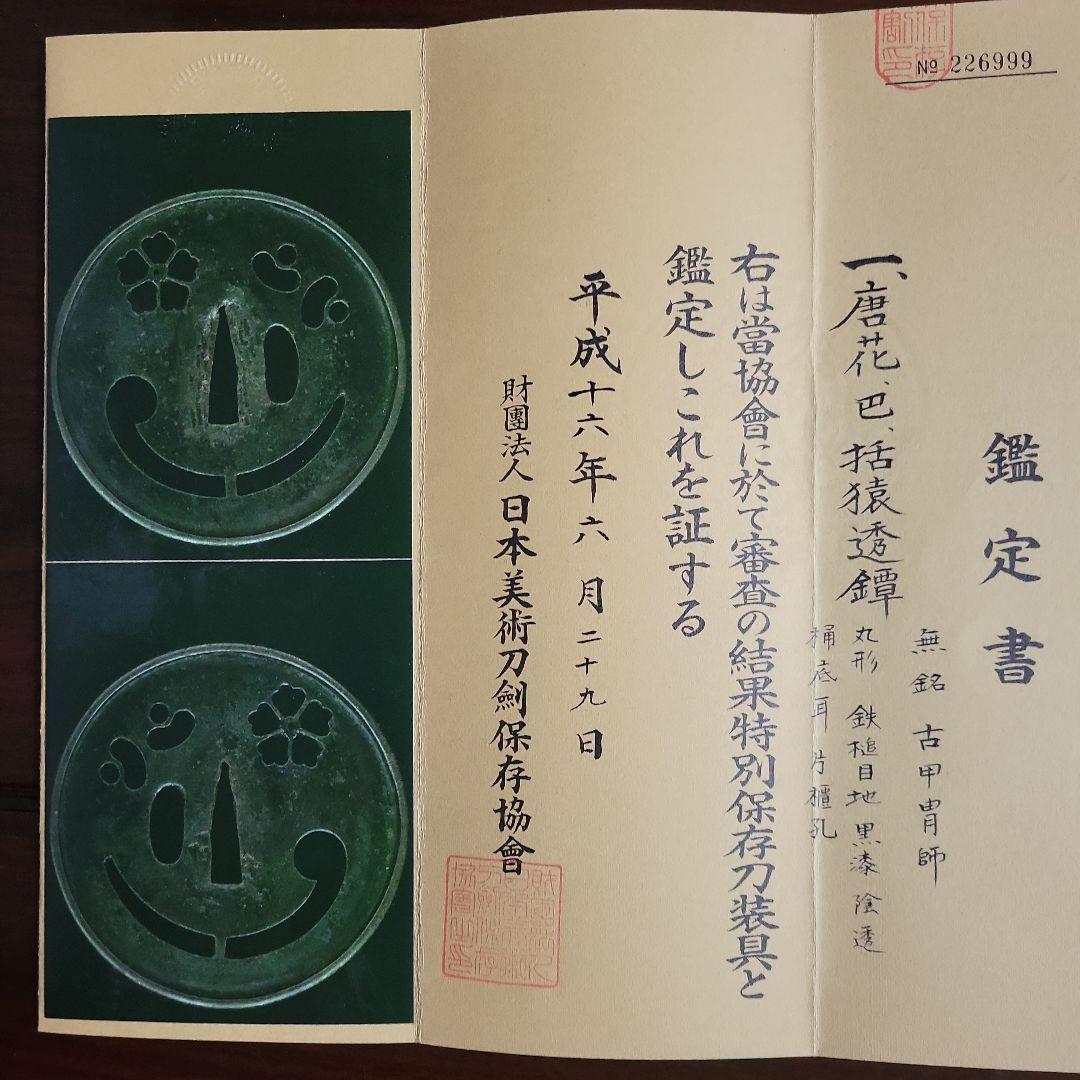 No 226999
鑑定書
一、唐花、巴、括猿透鐔
無銘 古甲冑師
丸形 鉄槌目地 黒漆 陰透
桶底耳 片櫃孔
右は當協會に於て審査の結果特別保存刀装具と
鑑定しこれを証する
平成十六年六月二十九日
財團法人日本美術刀劍保存協會